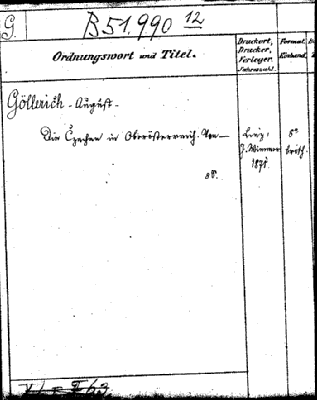 G.
B 51.990 12
Ordnungswort und Titel.
Druckort, Drucker, Verleger, Jahreszahl.
Format, Einband.
Göllerich - August -
Die Czechen in Oberösterreich. Von —
Linz,
Wimmer
1878.
8°
brosch.
8°.